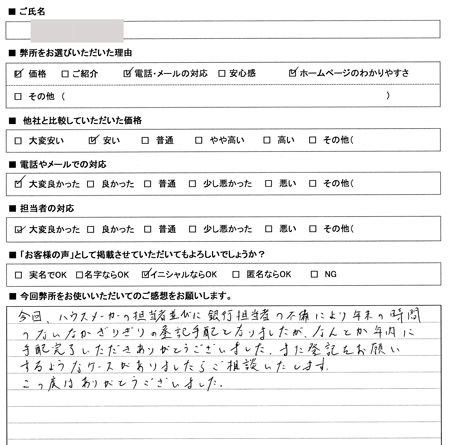 ■ ご氏名
■ 弊所をお選びいただいた理由
☑ 価格 □ ご紹介 ☑ 電話・メールの対応 □ 安心感 ☑ ホームページのわかりやすさ
□ その他 ( )
■ 他社と比較していただいた価格
□ 大変安い ☑ 安い □ 普通 □ やや高い □ 高い □ その他(
■ 電話やメールでの対応
☑ 大変良かった □ 良かった □ 普通 □ 少し悪かった □ 悪い □ その他(
■ 担当者の対応
☑ 大変良かった □ 良かった □ 普通 □ 少し悪かった □ 悪い □ その他(
■ 「お客様の声」として掲載させていただいてもよろしいでしょうか?
□ 実名でOK □ 名字ならOK ☑ イニシャルならOK □ 匿名ならOK □ NG
■ 今回弊所をお使いいただいてのご感想をお願いします。
今回、ハウスメーカーの担当者並びに銀行担当者の不備により年末の時間
のないなかぎりぎりの登記手配となりましたが、なんとか年内に
手配完了いただきありがとうございました。また登記をお願い
するようなケースがありましたらご相談いたします。
この度はありがとうございました。